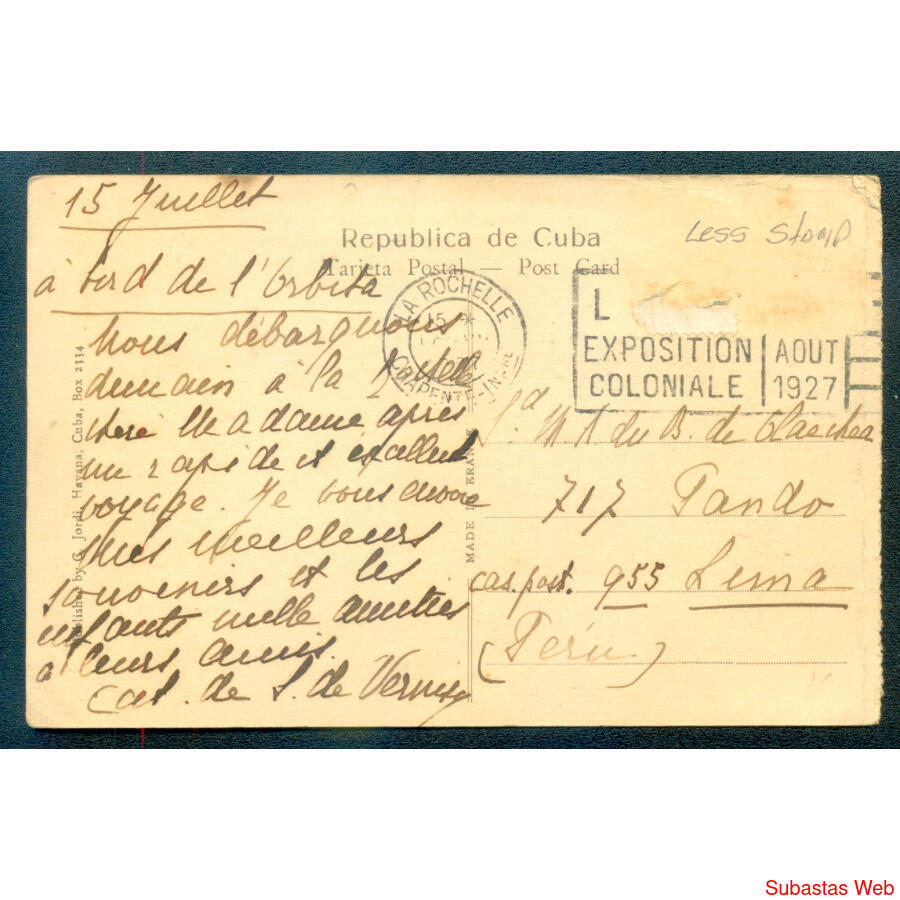 15 Juillet
à bord de l'Orbita
Nous débarquons
demain à la
chère Madame après
un rapide et excellent
voyage. Je vous envoie
mes meilleurs
souvenirs et les
enfants mille amitiés
à leurs amis.
de S. de
Republica de Cuba
Tarjeta Postal — Post Card
Less Stamp
LA ROCHELLE
15 *
CHARENTE-INFRE
L
EXPOSITION
COLONIALE
AOUT
1927
de
717 Pando
cas. post. 955 Lima
(Peru)
Published by C. Jordi, Havana, Cuba, Box 2334
MADE IN FRANCE
Subastas Web